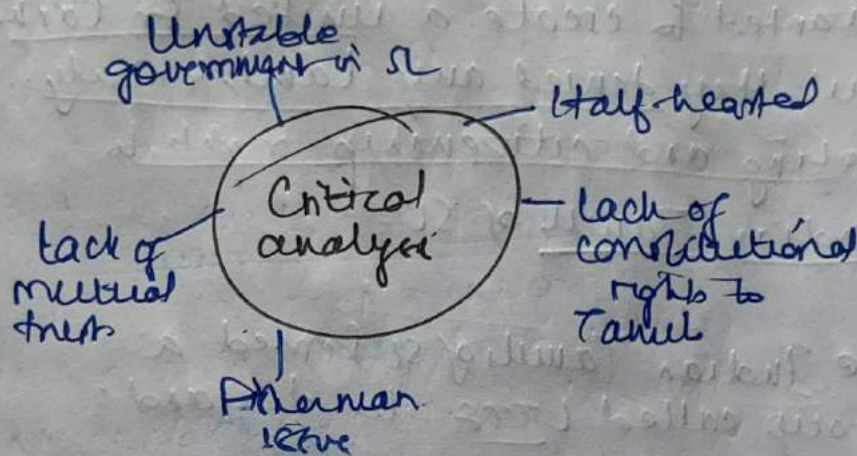 Unstable
government in SL
Half-hearted
Critical
analysis
Lack of
constitutional
rights to
Tamil
Lack of
mutual
trust
Fisherman
issue